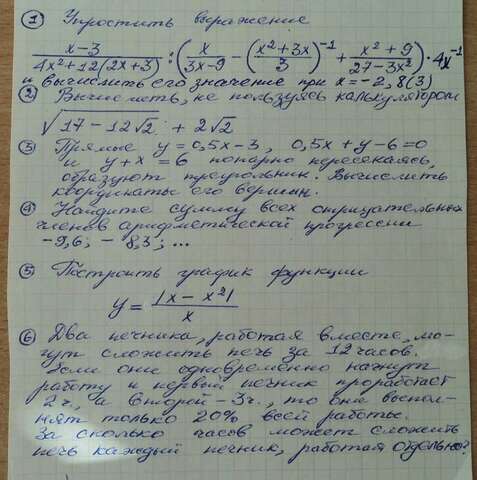 ① Упростить выражение
x-3 / 4x²+12(2x+3) : (x / 3x-9 - (x²+3x / 3)⁻¹ + x²+9 / 27-3x²) · 4x⁻¹
и вычислить его значение при x=-2,8(3)
② Вычислить, не пользуясь калькулятором
√17-12√2 + 2√2
③ Прямые y=0,5x-3, 0,5x+y-6=0
и y+x=6 попарно пересекаясь,
образуют треугольник. Вычислить
координаты его вершин.
④ Найдите сумму всех отрицательных
членов арифметической прогрессии
-9,6; -8,3; ...
⑤ Построить график функции
y = |x-x²| / x
⑥ Два печника, работая вместе, мо-
гут сложить печь за 12 часов.
Если они одновременно начнут
работу и первый печник проработает
2ч., а второй - 3ч., то они выпол-
нят только 20% всей работы.
За сколько часов может сложить
печь каждый печник, работая отдельно?